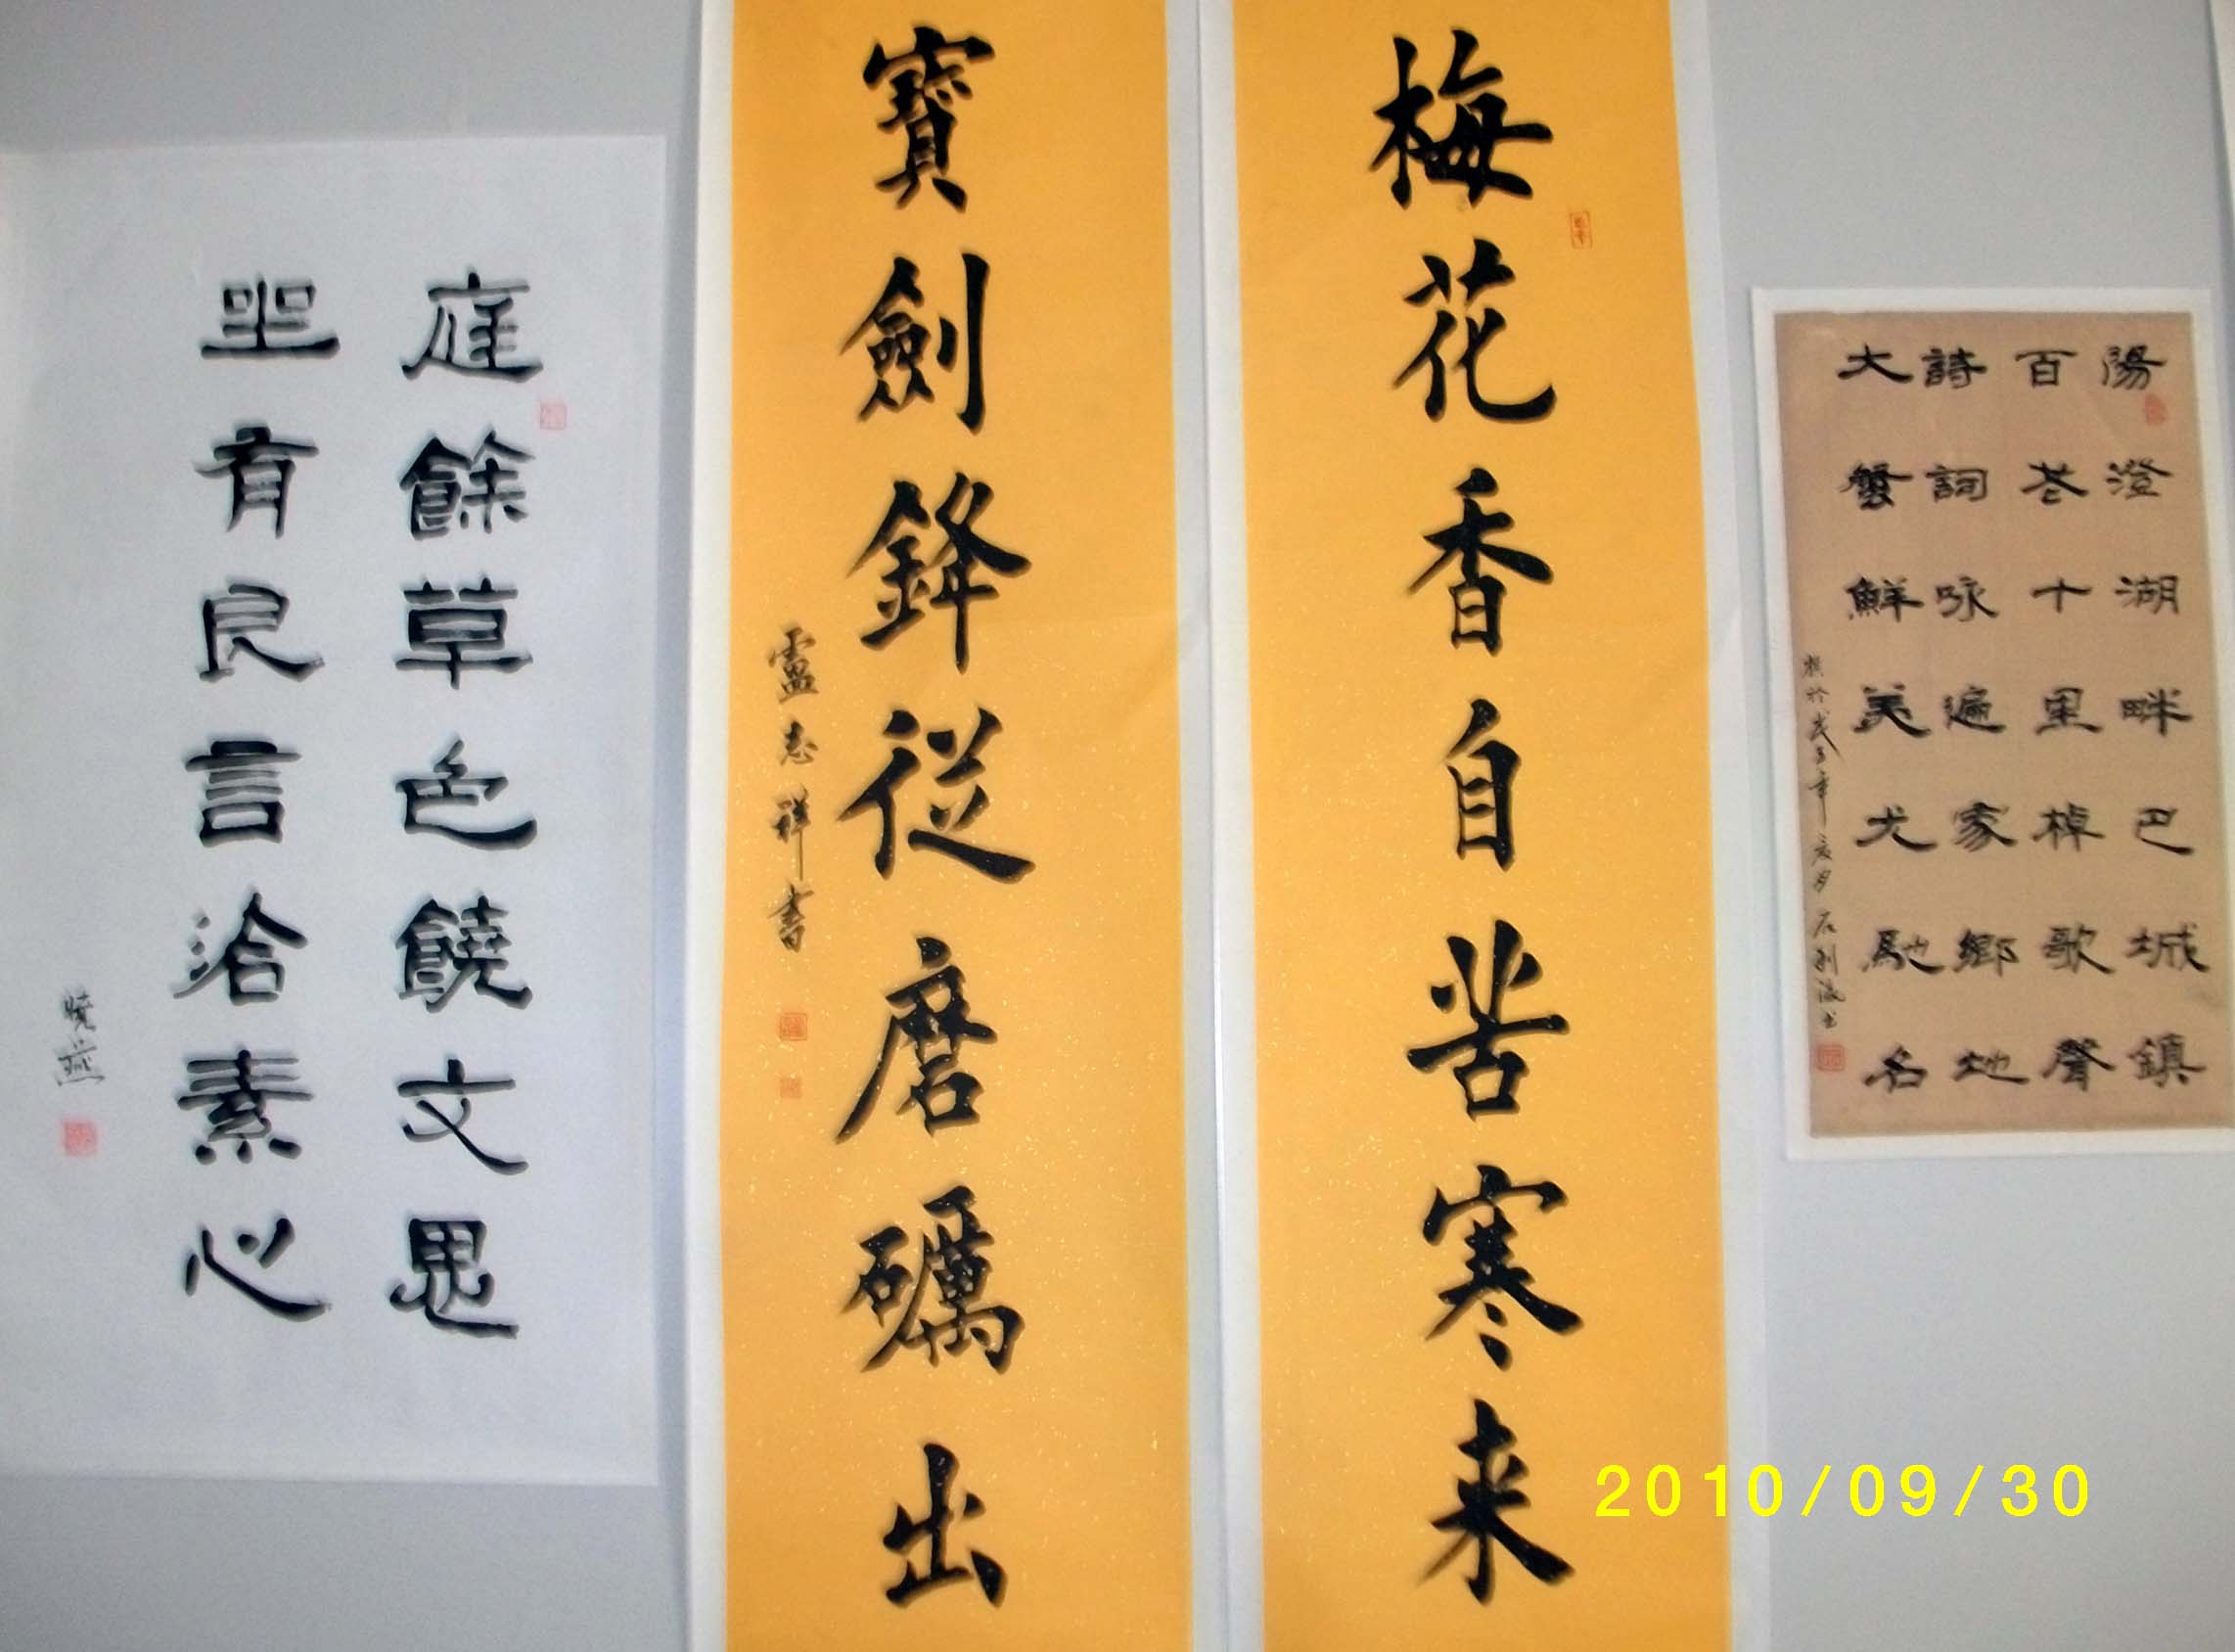 陽澄湖畔巴城鎮
百花十里棹歌聲
詩詞咏遍家鄉地
大蟹鮮美尤馳名
於戊子年亥月
梅花香自苦寒来
寶劍鋒從磨礪出
盧志祥書
庭餘草色饒文思
坐有良言洽素心
曉燕
2010/09/30